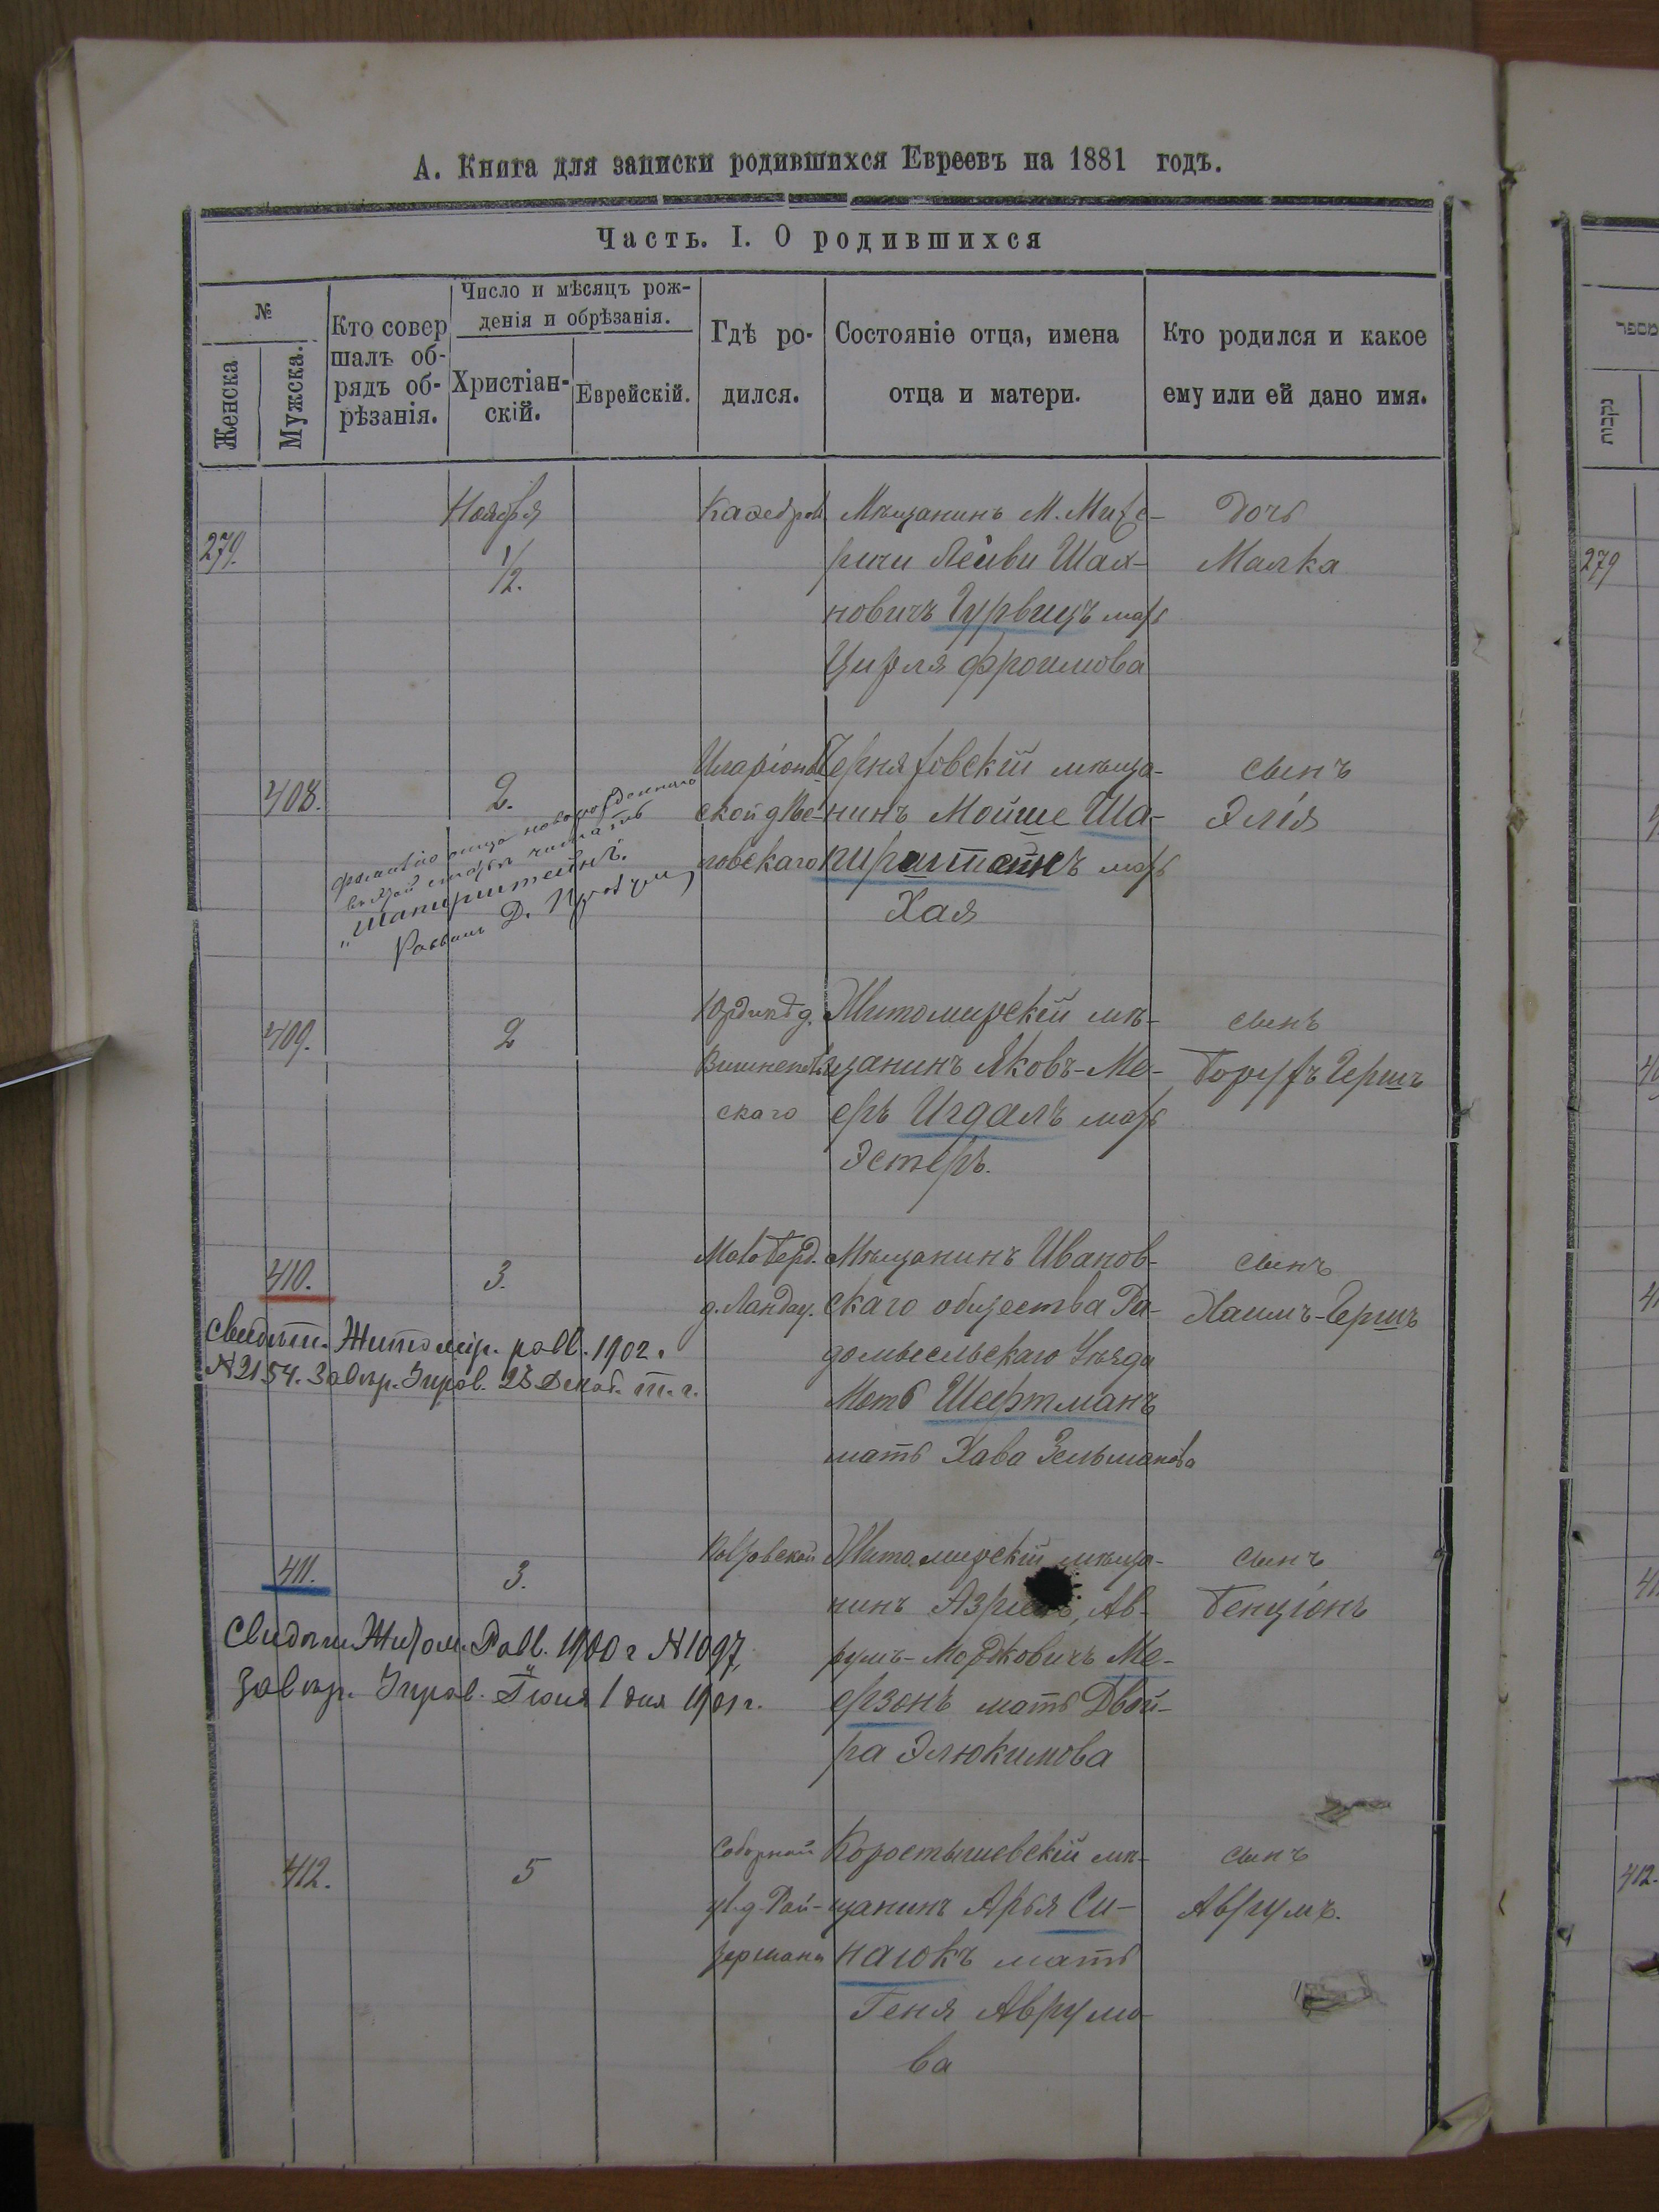 А. Книга для записки родившихся Евреевъ на 1881 годъ.
Часть. I. О родившихся
№
Женска
Мужска.
Кто совер
шалъ об-
рядъ об-
рѣзанія.
Число и мѣсяцъ рож-
денія и обрѣзанія.
Христіан-
скій.
Еврейскій.
Гдѣ ро-
дился.
Состояніе отца, имена
отца и матери.
Кто родился и какое
ему или ей дано имя.
279.
Ноября
1/2.
Мѣщанинъ М.
Лейви Шах-
новичъ Гурвицъ мать
Цирля Фроимова
Дочь
Малка
408.
2.
Черняховскій мѣща-
нинъ Мойше Ша-
пирштейнъ мать
Хая
сынъ
Элія
новорожденнаго
читать
„Шапирштейнъ".
Раввинъ Д.
409.
2
скаго
Житомирскій мѣ-
щанинъ Яковъ-Ме-
еръ Игдалъ мать
Эстеръ.
сынъ
Борухъ Гершъ
410.
3.
Мало Берд.
д. Ландау.
Мѣщанинъ Иванов-
скаго общества Ра-
домысельскаго Уѣзда
Моть Шефтманъ
мать Хава Зельманова
сынъ
Хаимъ-Гершъ
Свидѣт. Житомір. равв. 1902.
N 2154. Завѣр. Управ. 28 Декаб. т. г.
411.
3.
Житомирскій мѣща-
нинъ Ав-
румъ-Мордковичъ Ме-
ерзонъ мать Двой-
ра Элюкимова
сынъ
Бенціонъ
Свидѣт. Житом. Равв. 1900 г N 1097,
Завѣр. Управ. Іюня 1 дня 1901 г.
412.
5
Соборной
ул. д. Рай-
хермана
Коростышевскій мѣ-
щанинъ Арья Си-
наюкъ мать
Геня Аврумо-
ва
сынъ
Аврумъ.
מספר
נקבות
279
412.